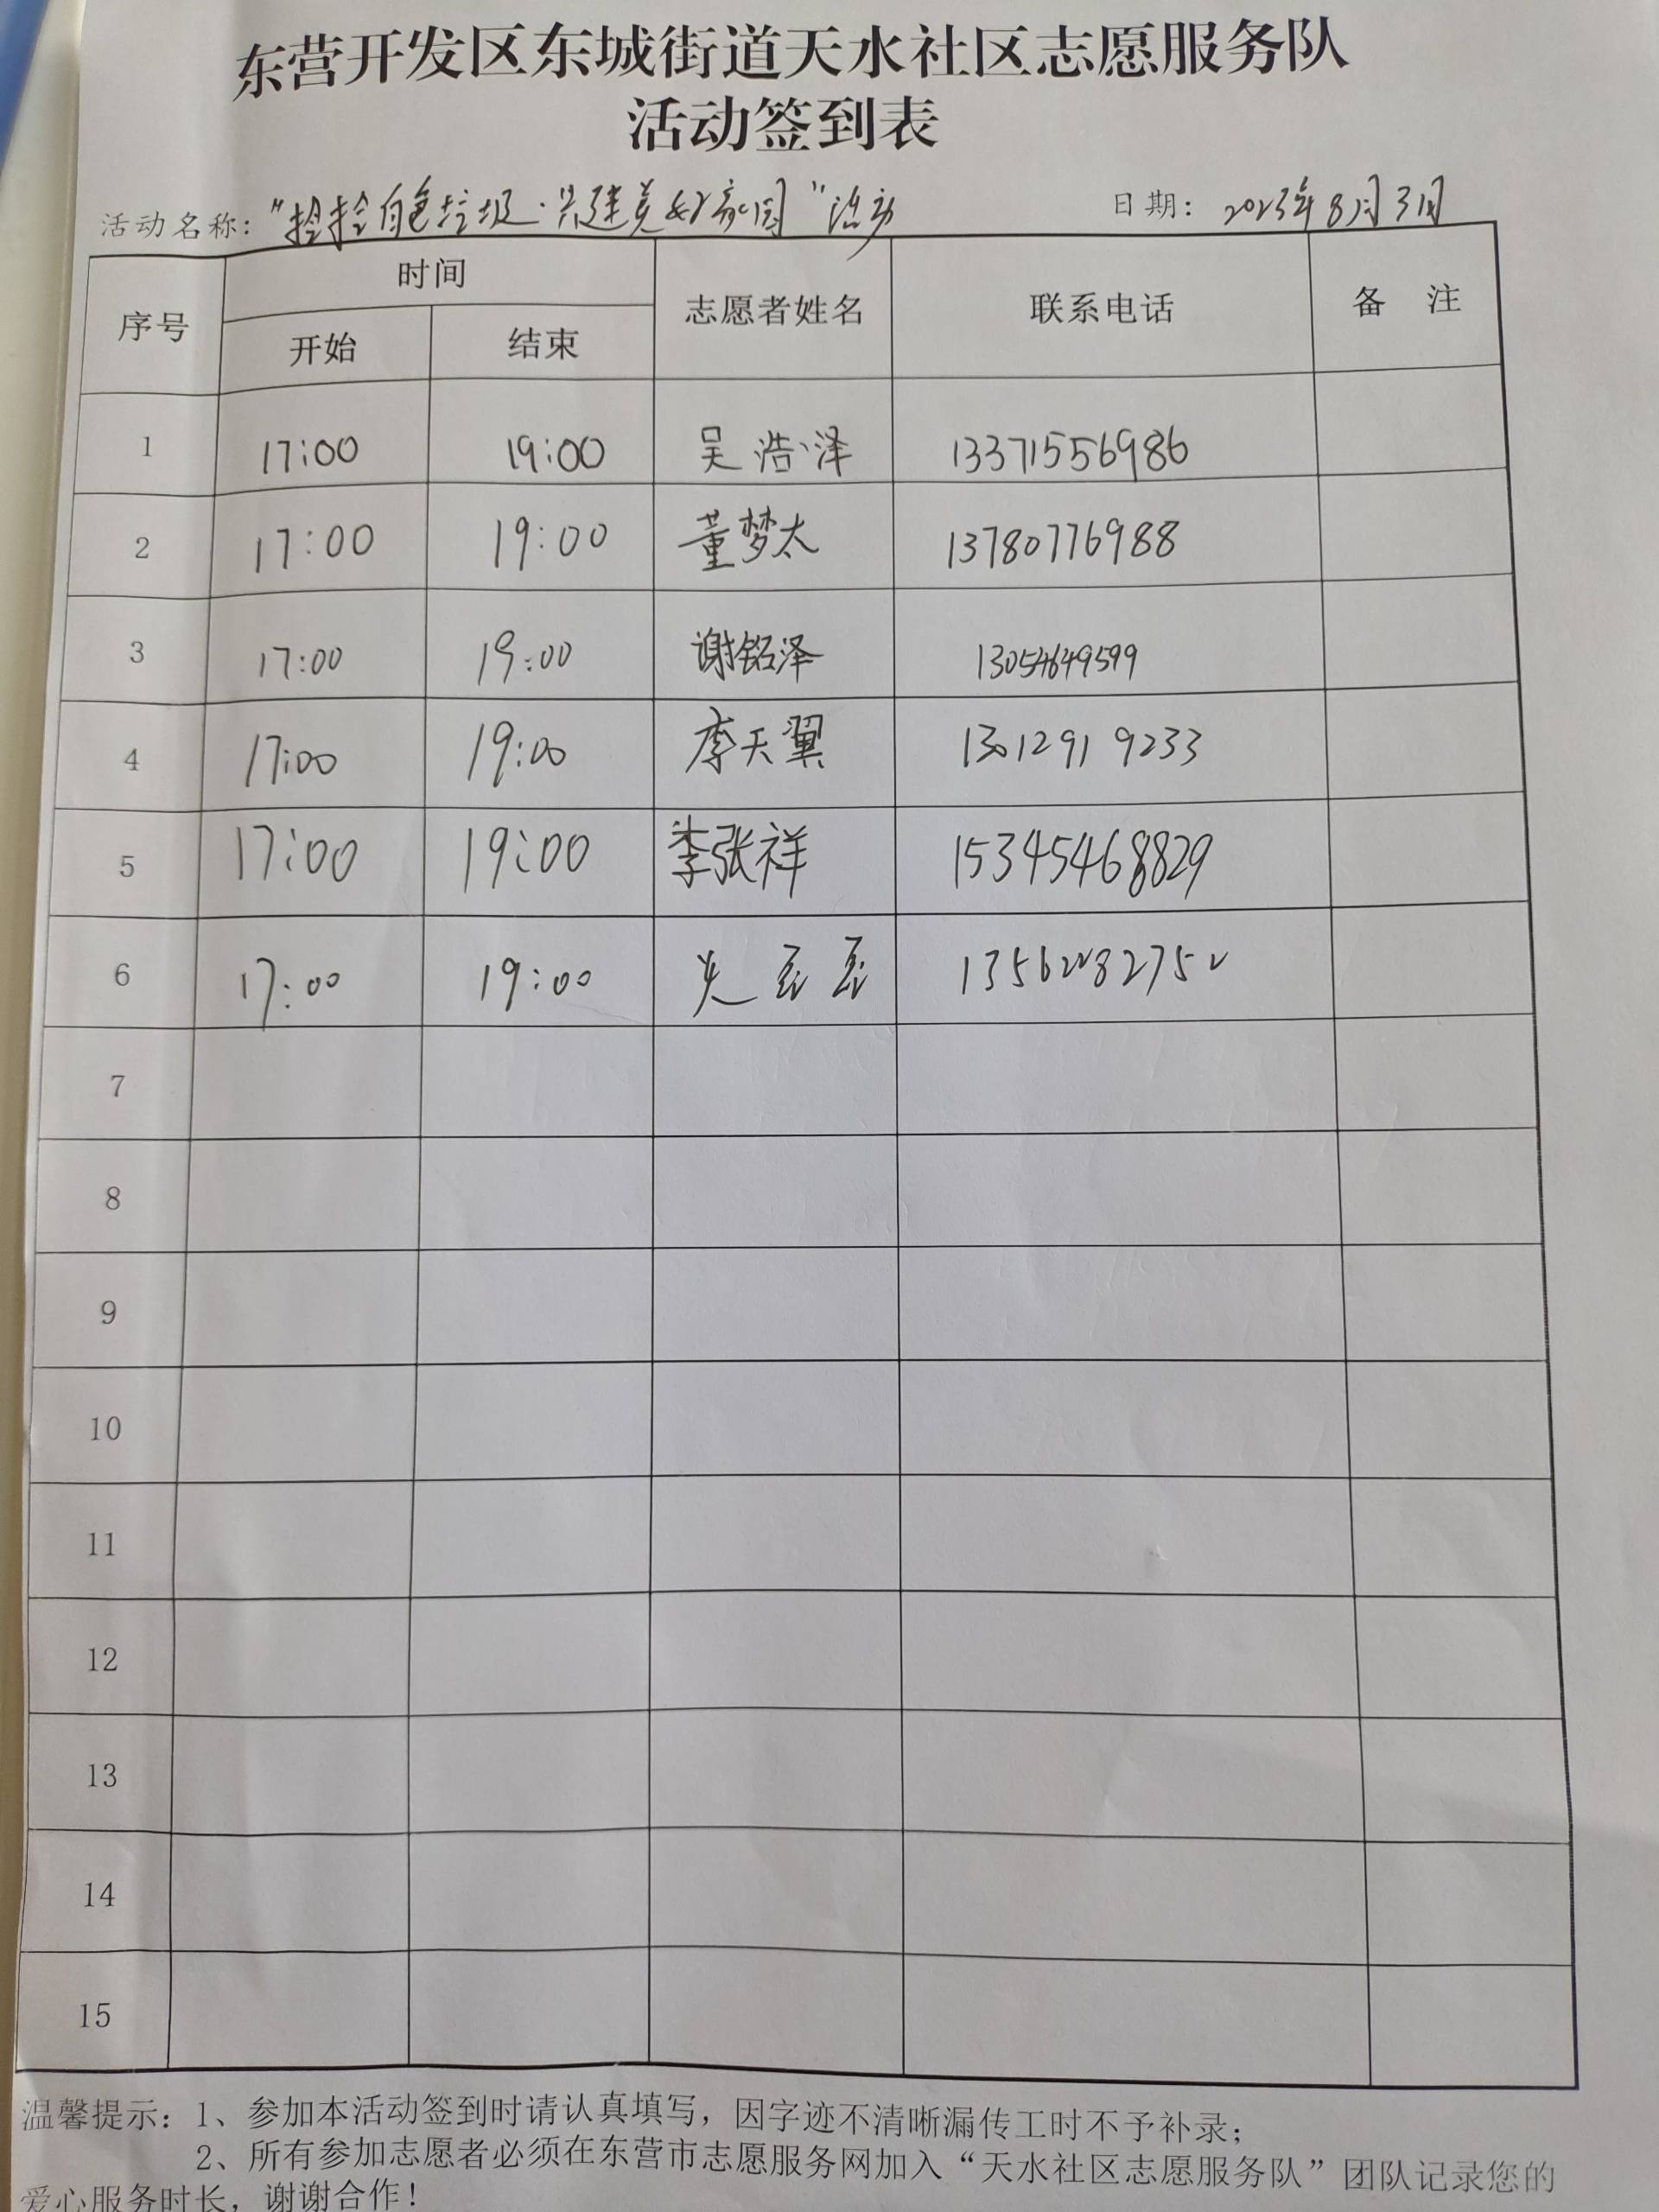 东营开发区东城街道天水社区志愿服务队
活动签到表
活动名称：“捡捡白色垃圾·共建美好家园”活动 日期：2023年8月3日
序号 时间 志愿者姓名 联系电话 备 注
开始 结束
1 17:00 19:00 吴浩泽 13371556986
2 17:00 19:00 董梦太 13780776988
3 17:00 19:00 谢铭泽 13054649599
4 17:00 19:00 李天翼 13012919233
5 17:00 19:00 李张祥 15345468829
6 17:00 19:00
7
8
9
10
11
12
13
14
15
温馨提示：1、参加本活动签到时请认真填写，因字迹不清晰漏传工时不予补录；
2、所有参加志愿者必须在东营市志愿服务网加入“天水社区志愿服务队”团队记录您的
爱心服务时长，谢谢合作！